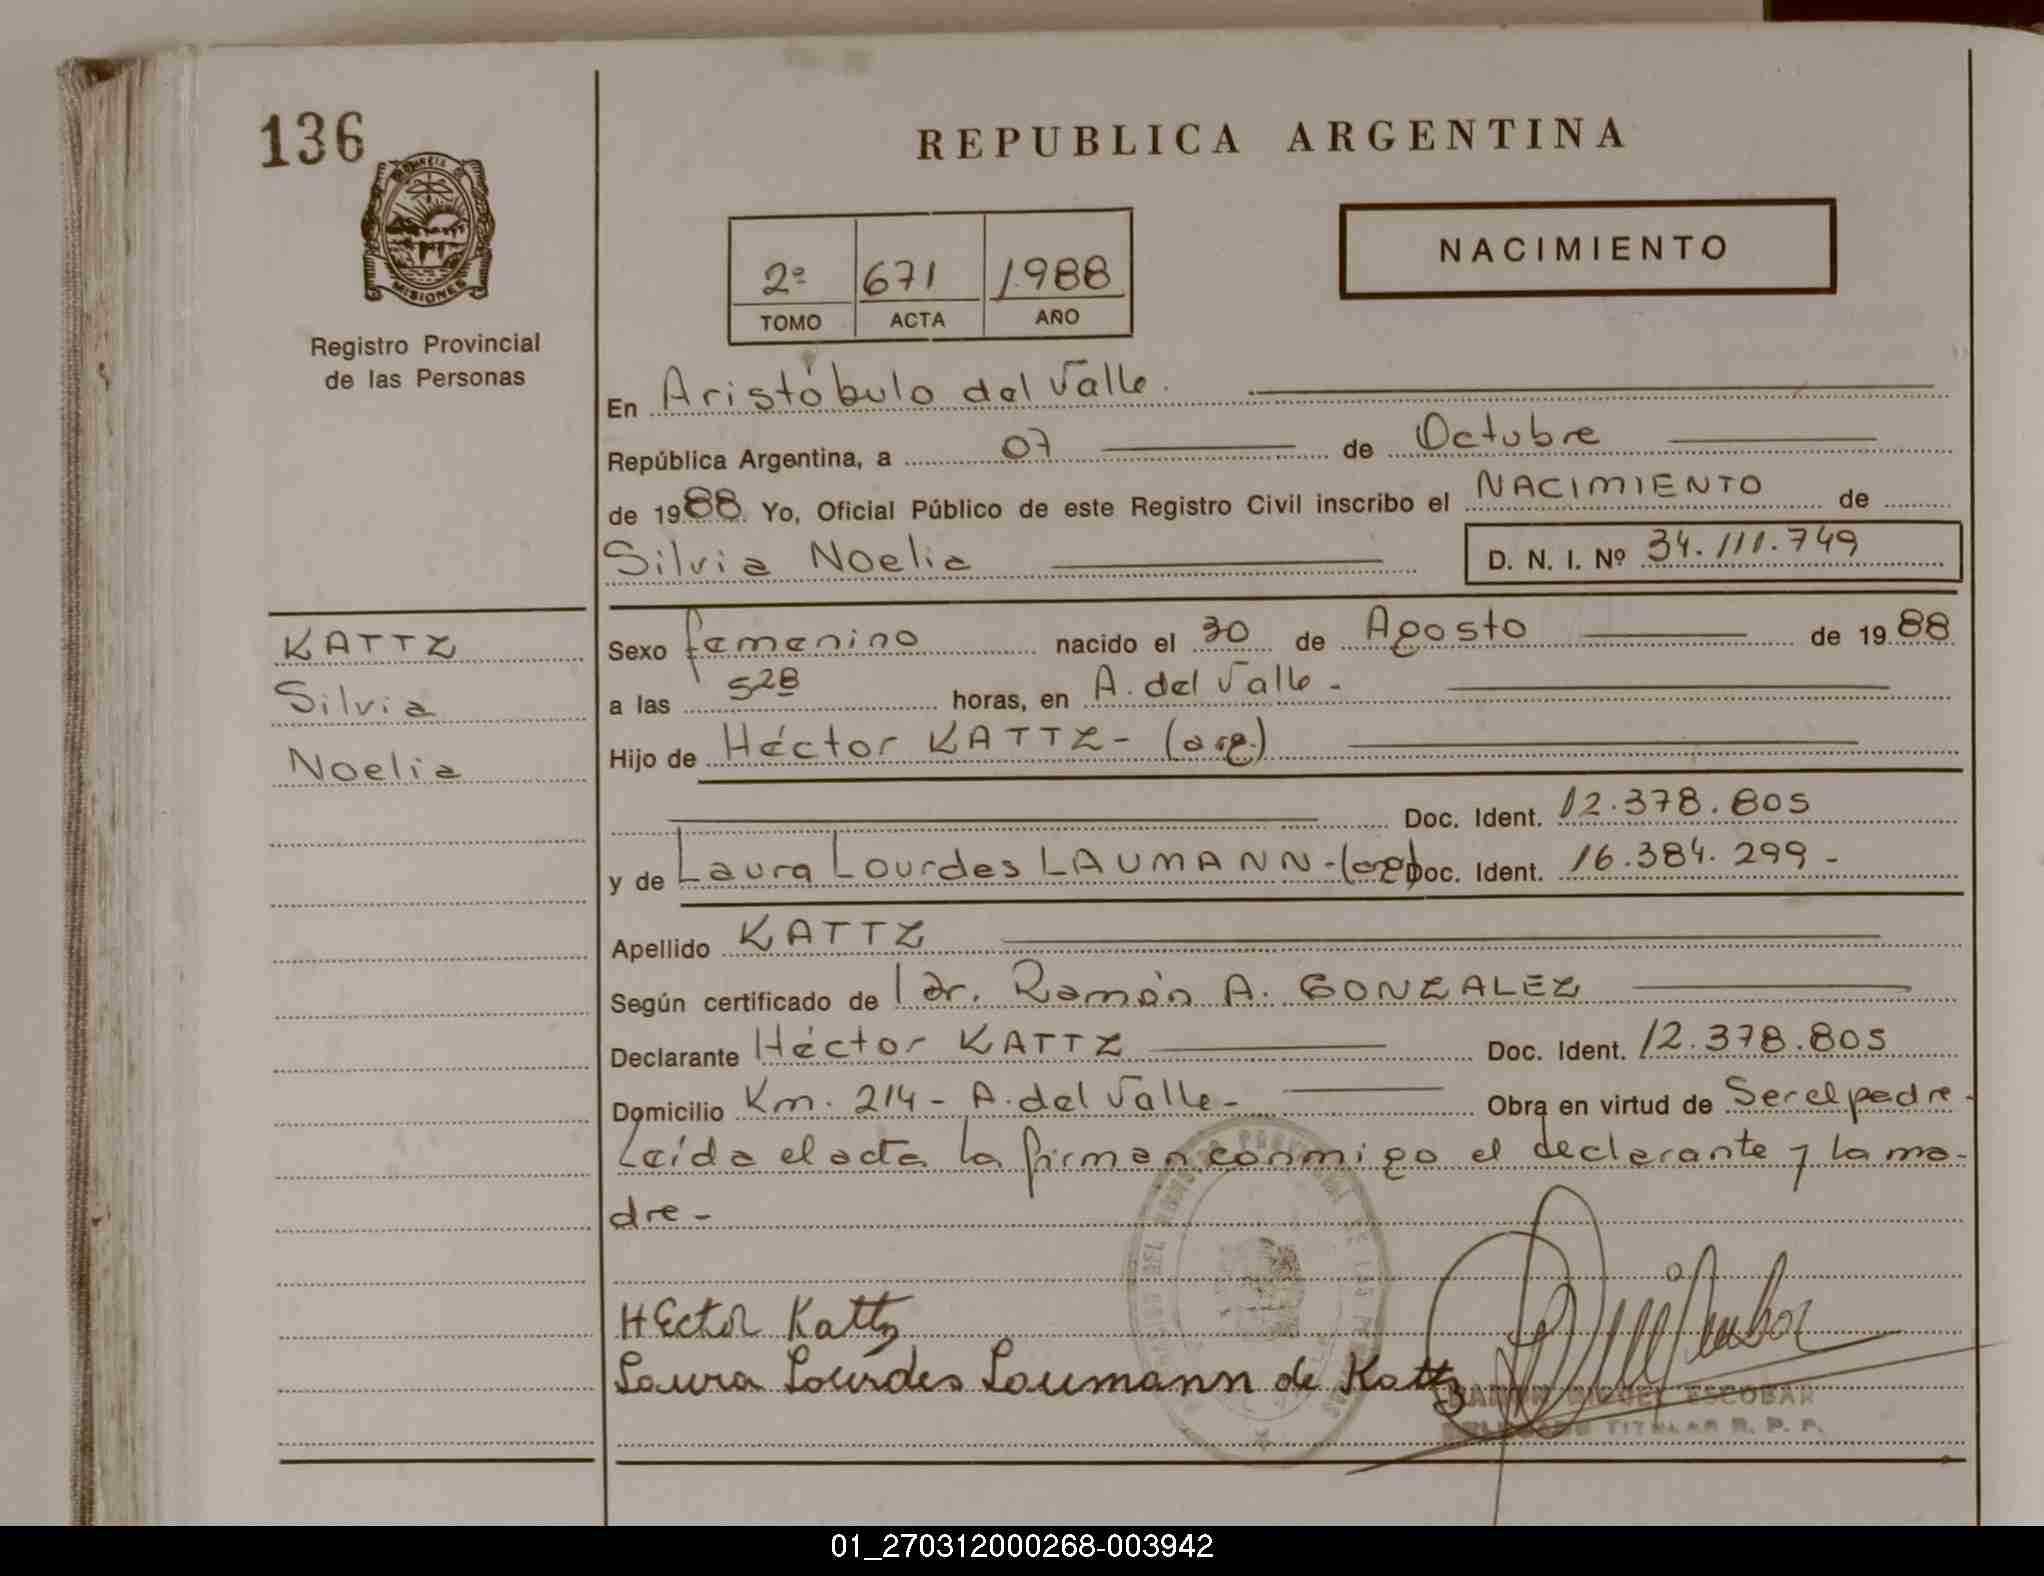 136
PROVINCIA
MISIONES
Registro Provincial
de las Personas
KATTZ
Silvia
Noelia
REPUBLICA ARGENTINA
2º 671 1988
TOMO ACTA AÑO
NACIMIENTO
En Aristóbulo del Valle.
República Argentina, a 07 de Octubre
de 1988 Yo, Oficial Público de este Registro Civil inscribo el NACIMIENTO de
Silvia Noelia D. N. I. Nº 34.111.749
Sexo femenino nacido el 30 de Agosto de 1988
a las 528 horas, en A. del Valle -
Hijo de Héctor KATTZ - (arg.)
Doc. Ident. 12.378.805
y de Laura Lourdes LAUMANN - (arg) Doc. Ident. 16.384.299 -
Apellido KATTZ
Según certificado de Dr. Ramón A. GONZALEZ
Declarante Héctor KATTZ Doc. Ident. 12.378.805
Domicilio Km. 214 - A. del Valle - Obra en virtud de Ser el padre -
Leída el acta la firman conmigo el declarante y la ma-
dre -
Héctor Kattz
Laura Lourdes Laumann de Kattz
RAMON MIGUEL ESCOBAR
DELEGADO TITULAR R. P. P.
01_270312000268-003942